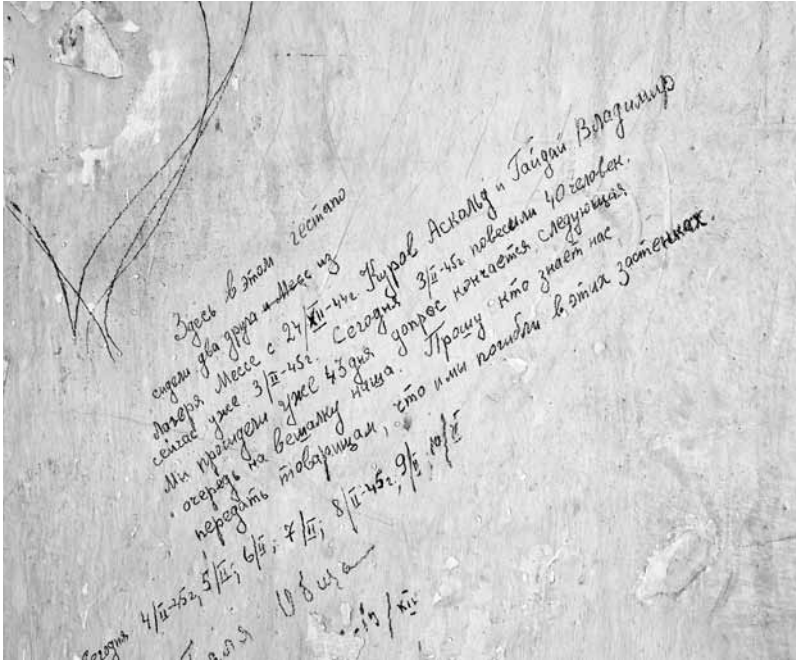 Здесь в этом гестапо
сидели два друга и Месс из
лагеря Мессе с 24/XII-44г Куров Аскольд и Гайдай Владимир
сейчас уже 3/II-45г. Сегодня 3/II-45г повесили 40 человек.
Мы просидели уже 43 дня допрос кончается следующая
очередь на вешалку наша. Прошу кто знает нас
передать товарищам, что и мы погибли в этих застенках.
Сегодня 4/II-45г, 5/II; 6/II; 7/II; 8/II-45г, 9/II, 10/II
/XII